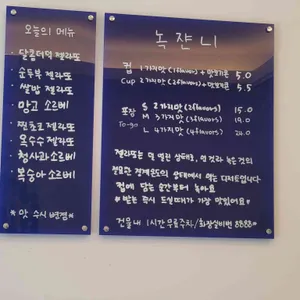 오늘의 메뉴
· 달콤더덕 젤라또
· 순두부 젤라또
· 쌀밥 젤라또
· 망고 소르베
· 찐초코 젤라또
· 옥수수 젤라또
· 청사과 소르베
· 복숭아 소르베
* 맛 수시 변경 *
녹쟌니
컵 1가지맛 (1flavors) + 맛보기콘 5.0
Cup 2가지맛 (2flavors) + 맛보기콘 5.5
포장 S 2가지맛 (2flavors) 15.0
To-go M 3가지맛 (3flavors) 19.0
L 4가지맛 (4flavors) 24.0
젤라또는 덜 얼린 상태로, 언 것과 녹은 것의
절묘한 경계온도의 상태에서 먹는 디저트입니다
컵에 담는 순간부터 녹아요
* 받는 즉시 드실때가 가장 맛있어요 *
건물내 1시간 무료주차 / 화장실비번 8888*